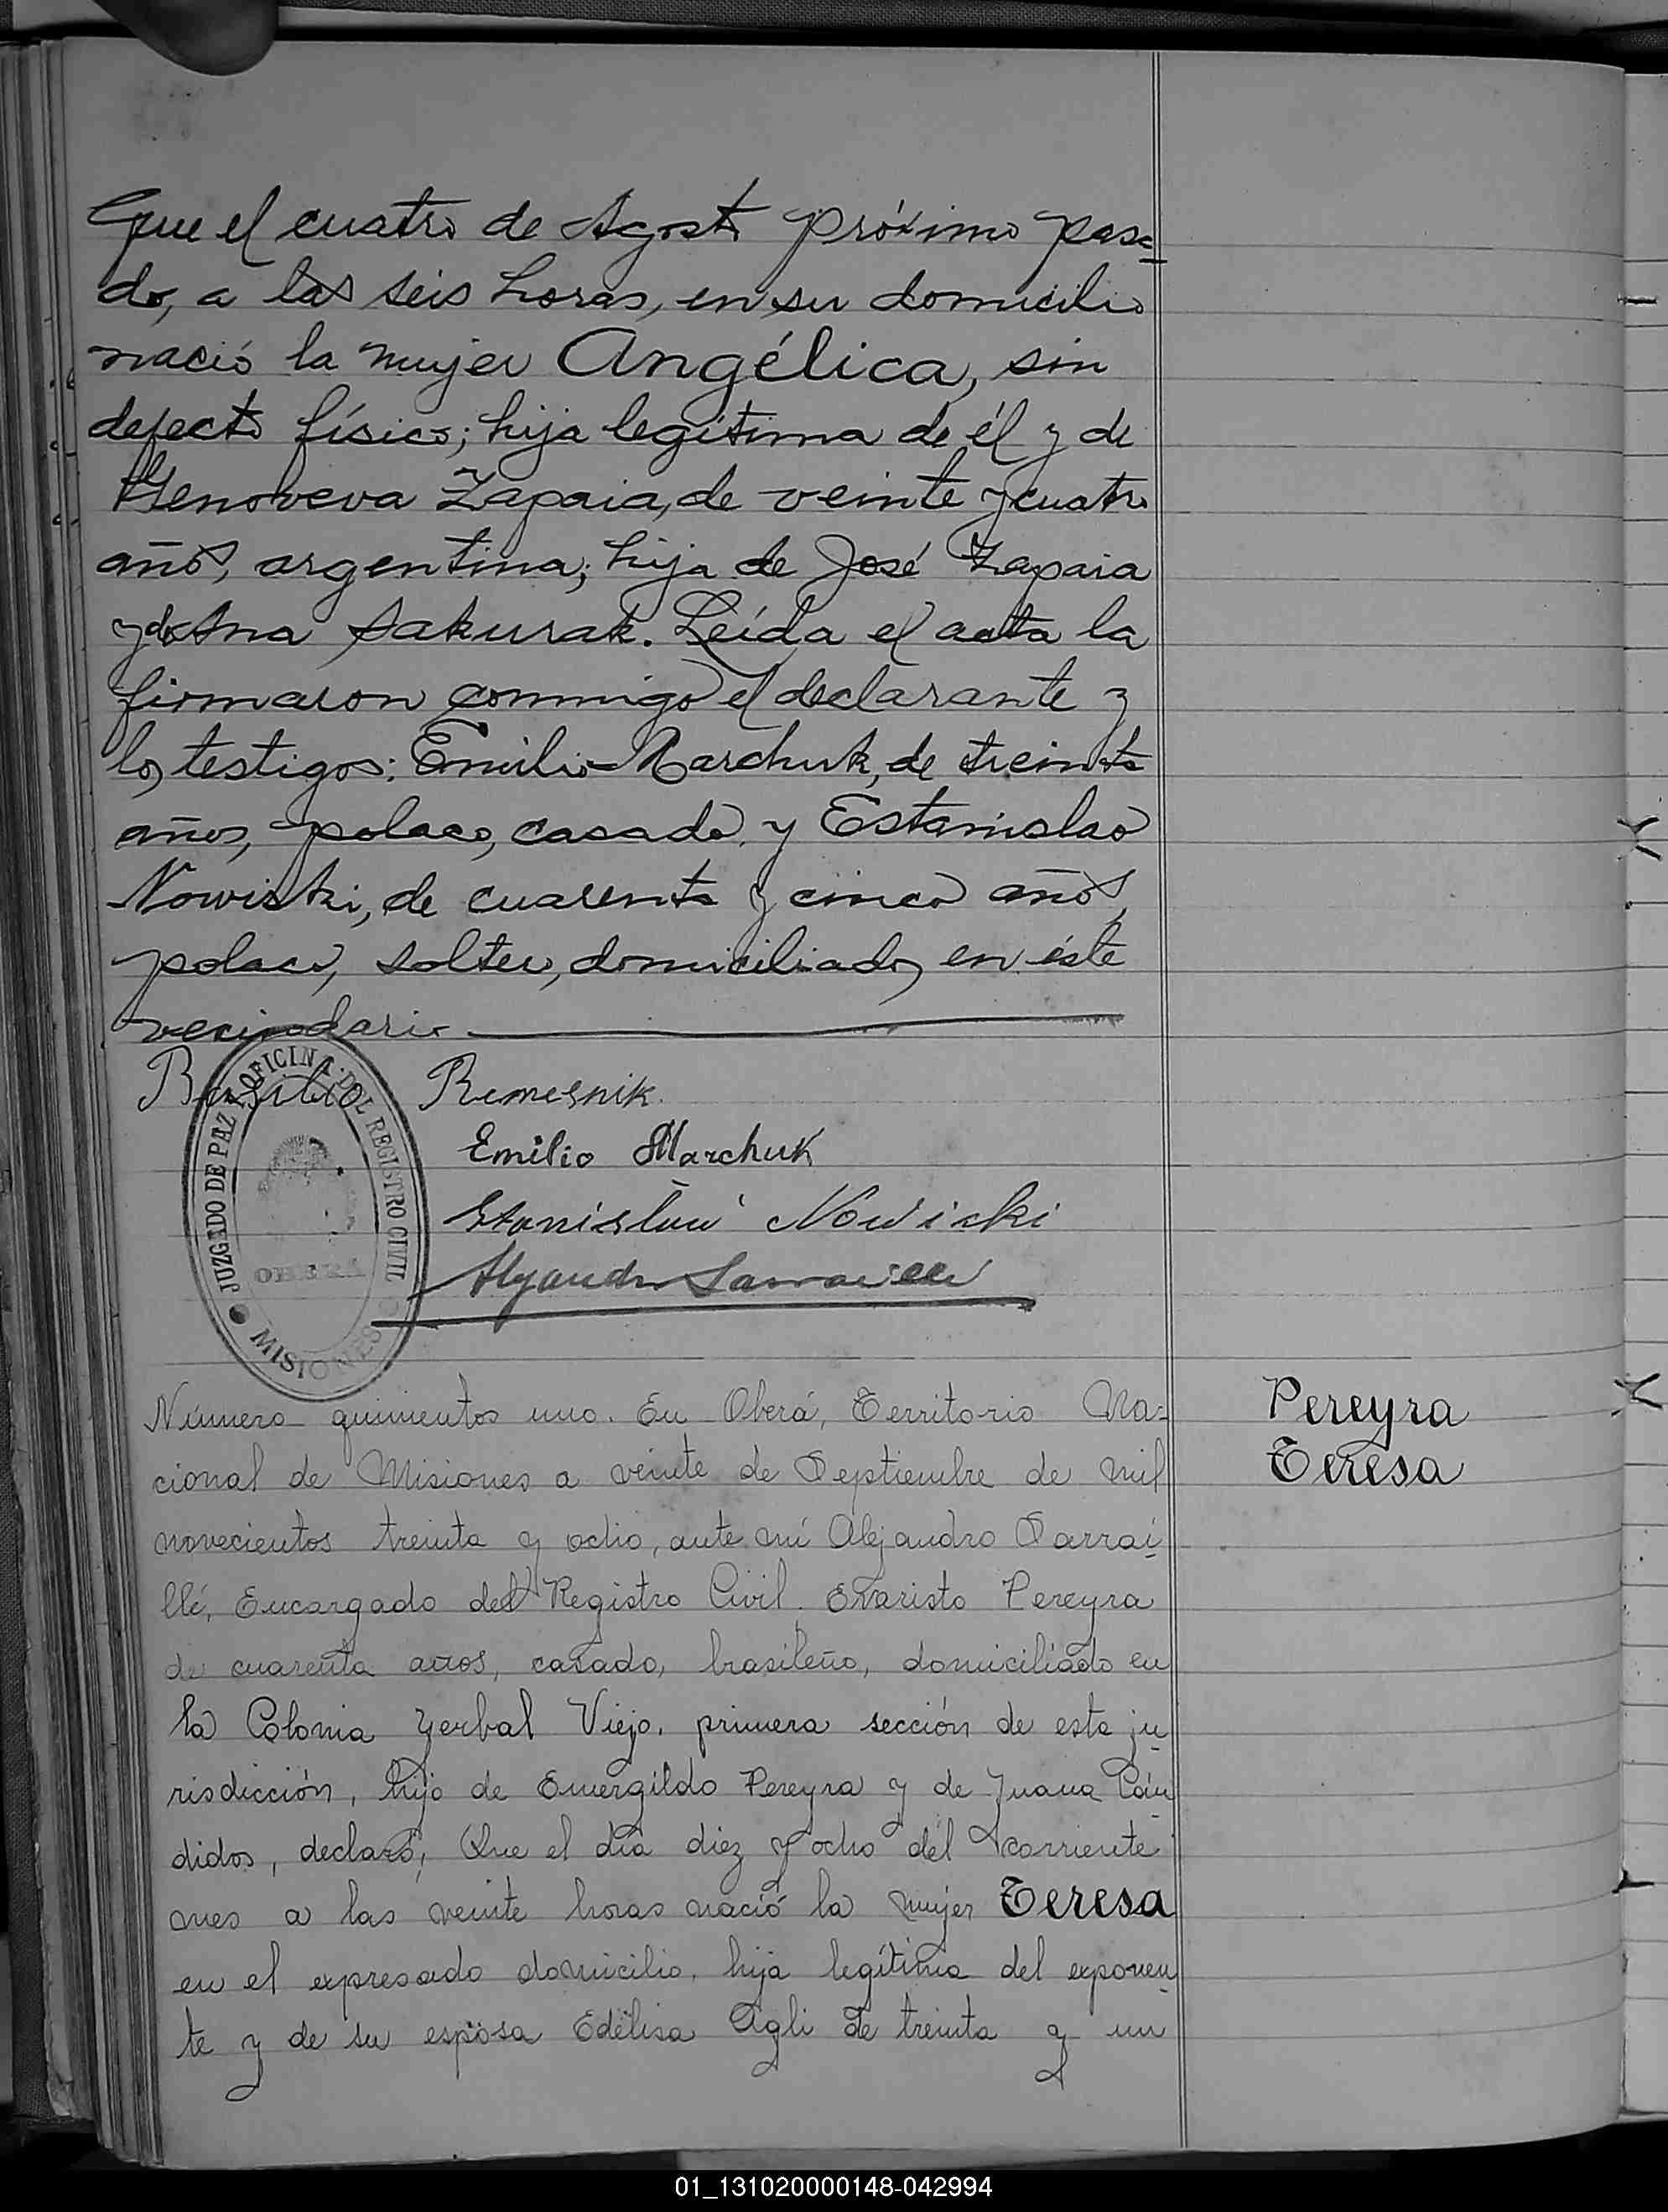 Que el cuatro de Agosto próximo pasa=
do, a las seis horas, en su domicilio
nació la mujer Angélica, sin
defecto físico; hija legítima de él y de
Genoveva Zapaia, de veinte y cuatro
años, argentina; hija de José Zapaia
y de Ana Sakurak. Leída el acta la
firmaron conmigo el declarante y
los testigos: Emilio Marchuk, de treinta
años, polaco, casado y Estanislao
Nowiski, de cuarenta y cinco años,
polaco, soltero, domiciliados en éste
vecindario
Basilio Remesnik.
Emilio Marchuk
Stanisław Nowicki
Alejandro Sarraillé
JUZGADO DE PAZ Y OFICINA DEL REGISTRO CIVIL
OBERA
MISIONES
Número quinientos uno. En Oberá, Territorio Na=
cional de Misiones a veinte de Septiembre de mil
novecientos treinta y ocho, ante mí Alejandro Sarrai-
llé, Encargado del Registro Civil. Evaristo Pereyra
de cuarenta años, casado, brasileño, domiciliado en
la Colonia Yerbal Viejo, primera sección de esta ju-
risdicción, hijo de Emergildo Pereyra y de Juana Cán-
didos, declaró; Que el día diez y ocho del corriente
mes a las veinte horas nació la mujer Teresa
en el expresado domicilio, hija legítima del exponen-
te y de su esposa Edelisa Agli de treinta y un
Pereyra
Teresa
01_131020000148-042994